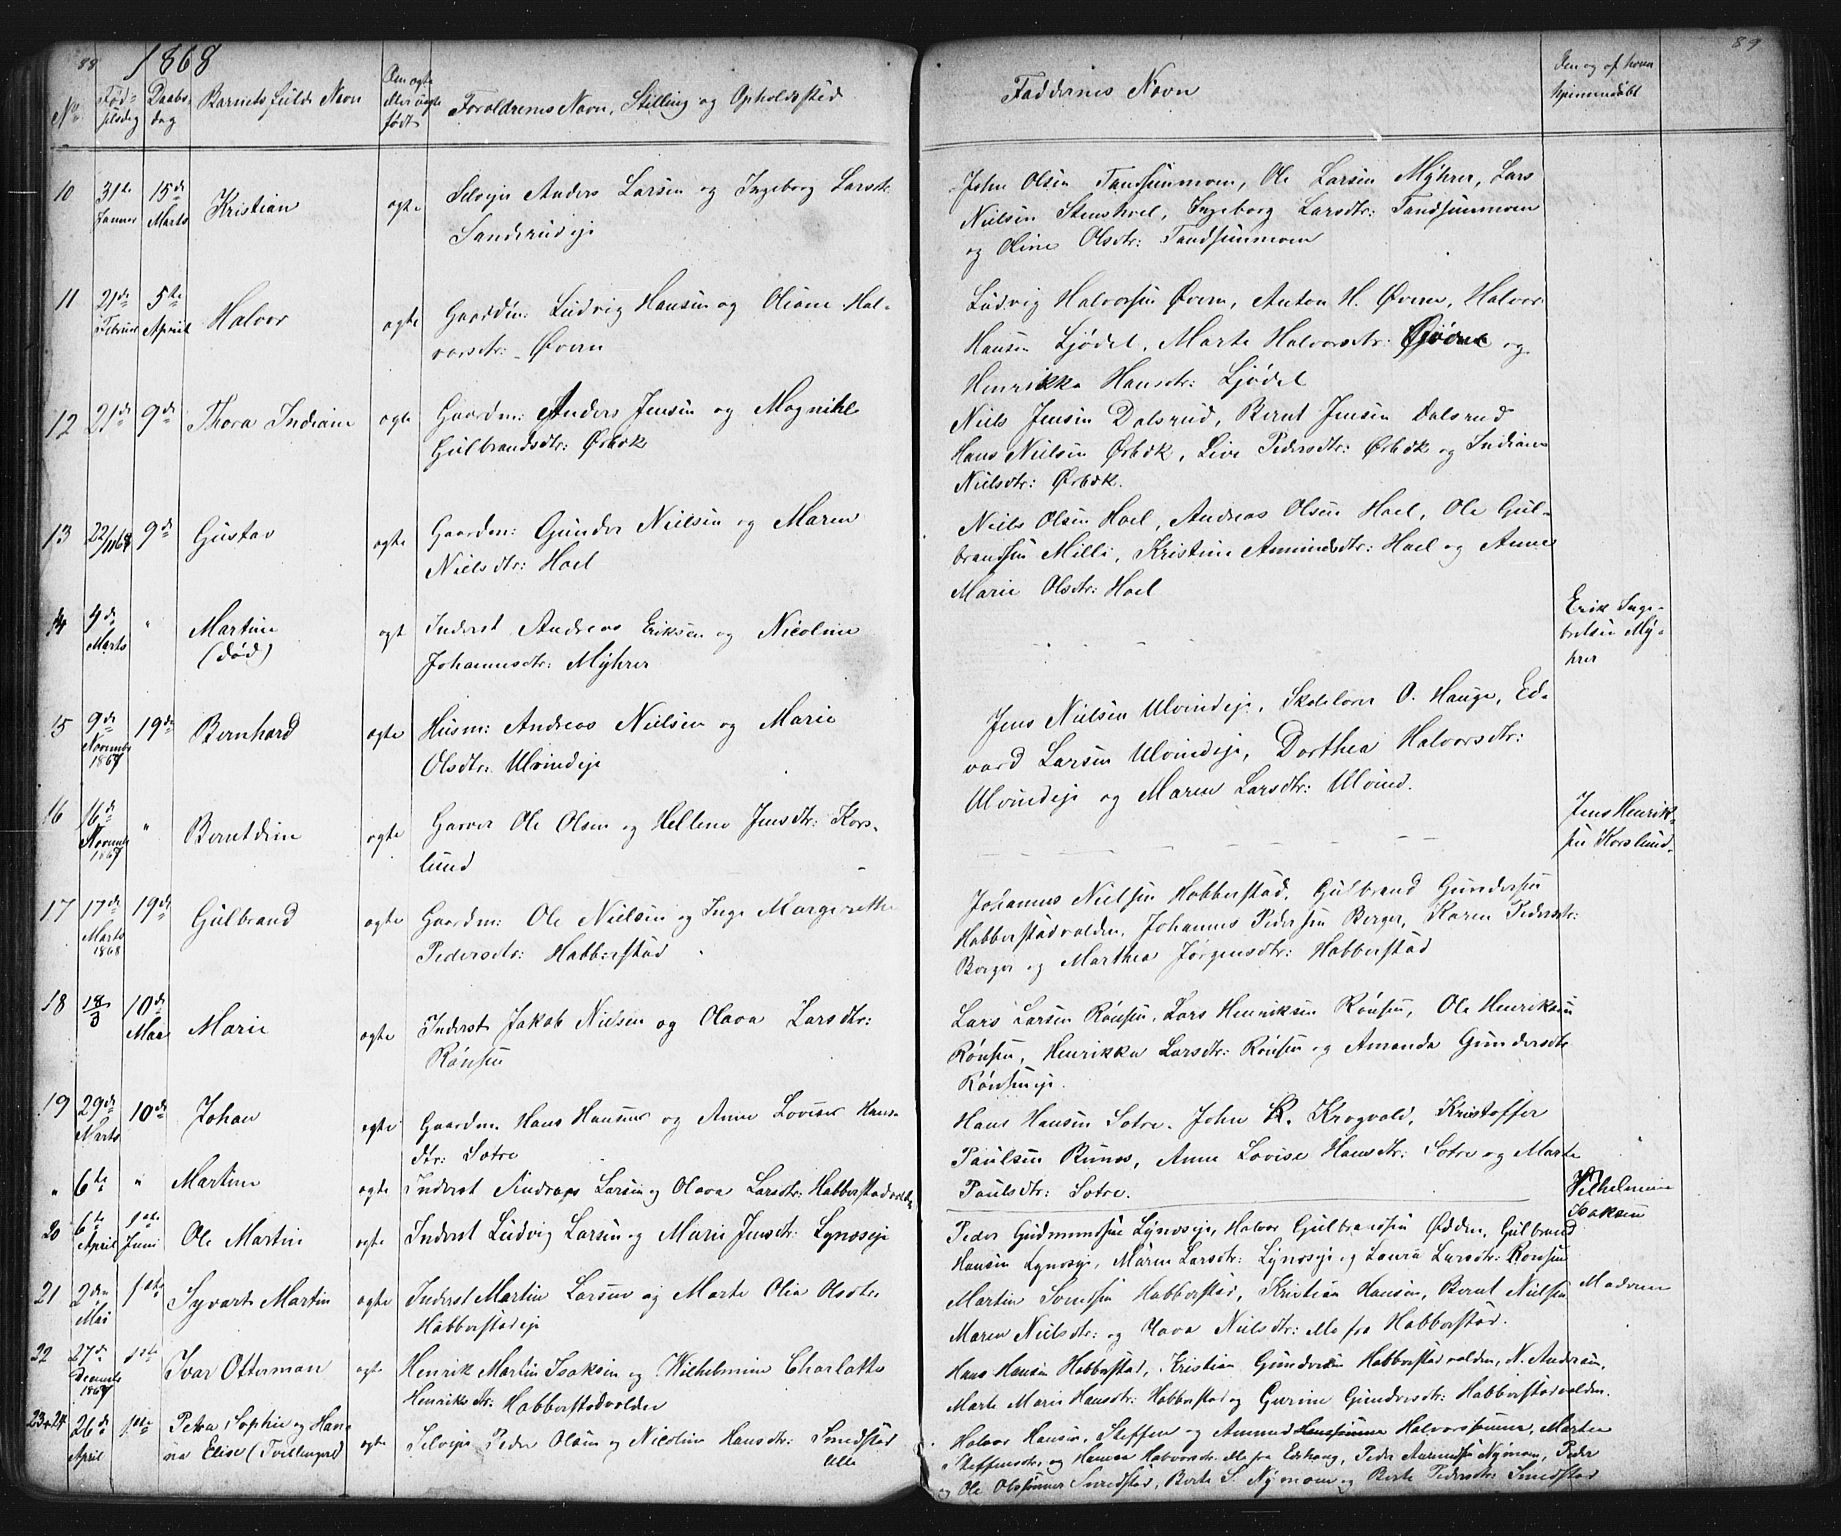 88
1868
89
No
Fød-
selsdag
Daabs-
dag
Barnets fulde Navn
Om ægte
eller uægte
født
Forældrenes Navn, Stilling og Opholdssted
Faddernes Navn
Den og af hvem
hjemmedøbt
10
31te
Januar
15de
Marts
Kristian
ægte
Selvejer Anders Larsen og Ingeborg Larsdtr:
Sanderudeje
John Olsen Tandsunmoen, Ole Larsen Mÿhrer, Lars
Nielsen Stenshoel, Ingeborg Larsdtr: Tandsunmoen
og Oline Olsdtr: Tandsunmoen
11
21de
Februar
5te
April
Halvor
ægte
Gaardm: Ludvig Hansen og Oliane Hal-
vorsdtr: Øvern
Ludvig Halvorsen Øvern, Anton H. Øvern, Halvor
Hansen Ljødel, Marte Halvorsdtr: og
Henrikka Hansdtr: Ljødel
12
21de
9de
Thora Indiane
ægte
Gaardm: Anders Jensen og Magnihl
Gulbrandsdtr: Ørbæk
Niels Jensen Dalsrud, Bernt Jensen Dalsrud
Hans Nielsen Ørbæk, Live Pedersdtr: Ørbæk og Indiane
Nielsdtr: Ørbæk.
13
22/1168
9de
Gustav
ægte
Gaardm: Gunder Nielsen og Maren
Nielsdtr: Hoel
Niels Olsen Hoel, Andreas Olsen Hoel, Ole Gul-
brandsen Milli, Kristine Amundsdtr: Hoel og Anne
Marie Olsdtr: Hoel
14
4de
Marts
"
Martine
(død)
ægt
Inderst Andreas Eriksen og Nicoline
Johannesdtr: Mÿhrer
Erik Inge-
bretsen Mÿ-
hrer
15
9de
Novembr
1867
19de
Bernhard
ægte
Husm: Andreas Nielsen og Marie
Olsdtr: Ulvindeje
Jens Nielsen Ulvindeje, Skolelærer O. Hauge, Ed-
vard Larsen Ulvindeje, Dorthea Halvorsdtr:
Ulvindeje og Maren Larsdtr: Ulvind.
16
16de
Novembr
1867
"
Berntdine
ægte
Garver Ole Olsen og Hellene Jensdtr: Kors-
lund
Jens Henrik-
sen Korslund.
17
17de
Marts
1868
19de
Gulbrand
ægte
Gaardm: Ole Nielsen og Inge Margrethe
Pedersdtr: Habberstad
Johannes Nielsen Habberstad, Gulbrand Gundersen
Habberstadvalden, Johannes Pedersen Berger, Karen Pedersdtr:
Berger og Marthea Jørgensdtr: Habberstad
18
18/3
10de
Mai
Marie
ægte
Inderst Jakob Nielsen og Olava Larsdtr:
Rønsen
Lars Larsen Rønsen, Lars Henriksen Rønsen, Ole Henriksen
Rønsen, Henrikka Larsdtr: Rønsen og Amanda Gundersdtr
Rønseneje.
19
29de
Marts
10de
Johan
ægte
Gaardm. Hans Hansen og Anne Lovise Hans-
dtr: Sotre
Hans Hansen Sotre, John K. Krogvold, Kristoffer
Paulsen Runes, Anne Lovise Hansdtr: Sotre og Marte
Paulsdtr: Sotre.
"
6te
"
Martine
ægte
Inderst Andreas Larsen og Olava Larsdtr: Habberstadvalden
Vilhelmine
Isaksen
20
6te
April
1ste
Juni
Ole Martin
ægte
Inderst Ludvig Larsen og Marie Jensdtr: Lÿnæseje
Peder Gudmundsen Lÿnæseje, Halvor Gulbrandsen Ødden, Gulbrand
Hansen Lynæseje, Maren Larsdtr: Lÿnæseje og Laura Larsdtr: Rønsen
21
2den
Mai
1ste
Syvart Martin
ægte
Inderst Martin Larsen og Marte Olia Olsdtr
Habberstadeje
Martin Svendsen Habberstad, Kristian Hansen, Bernt Nielsen
Maren Nielsdtr: og Olava Nielsdtr: Alle fra Habberstad.
Moderen
22
27de
Decembr
1867
1ste
Ivar Otterman
ægte
Henrik Martin Isaksen og Wilhelmine Charlotte
Henriksdtr: Habberstadvalden
Hans Hansen Habberstad, Kristian Gundersen Habberstadvalden, N. Andersen,
Marte Marie Hansdtr: Habberstad og Gurine Gundersdtr: Habberstadvalden.
23+24
26de
April
1ste
Petra Sophie og Han-
na Elise (Tvillingered)
ægte
Selvejer Peder Olsen og Nicoline Hansdtr: Smedstad
Halvor Hansen, Steffen og Amund Halvorssønner, Marthe
Steffensdtr. og Hanna Halvorsdtr. Alle fra Eidshaug, Peder Amundsen Nÿmoen, Peder
og Ole Olssønner Smedstad, Berte S. Nÿmoen og Berte Pedersdtr: Smedstad